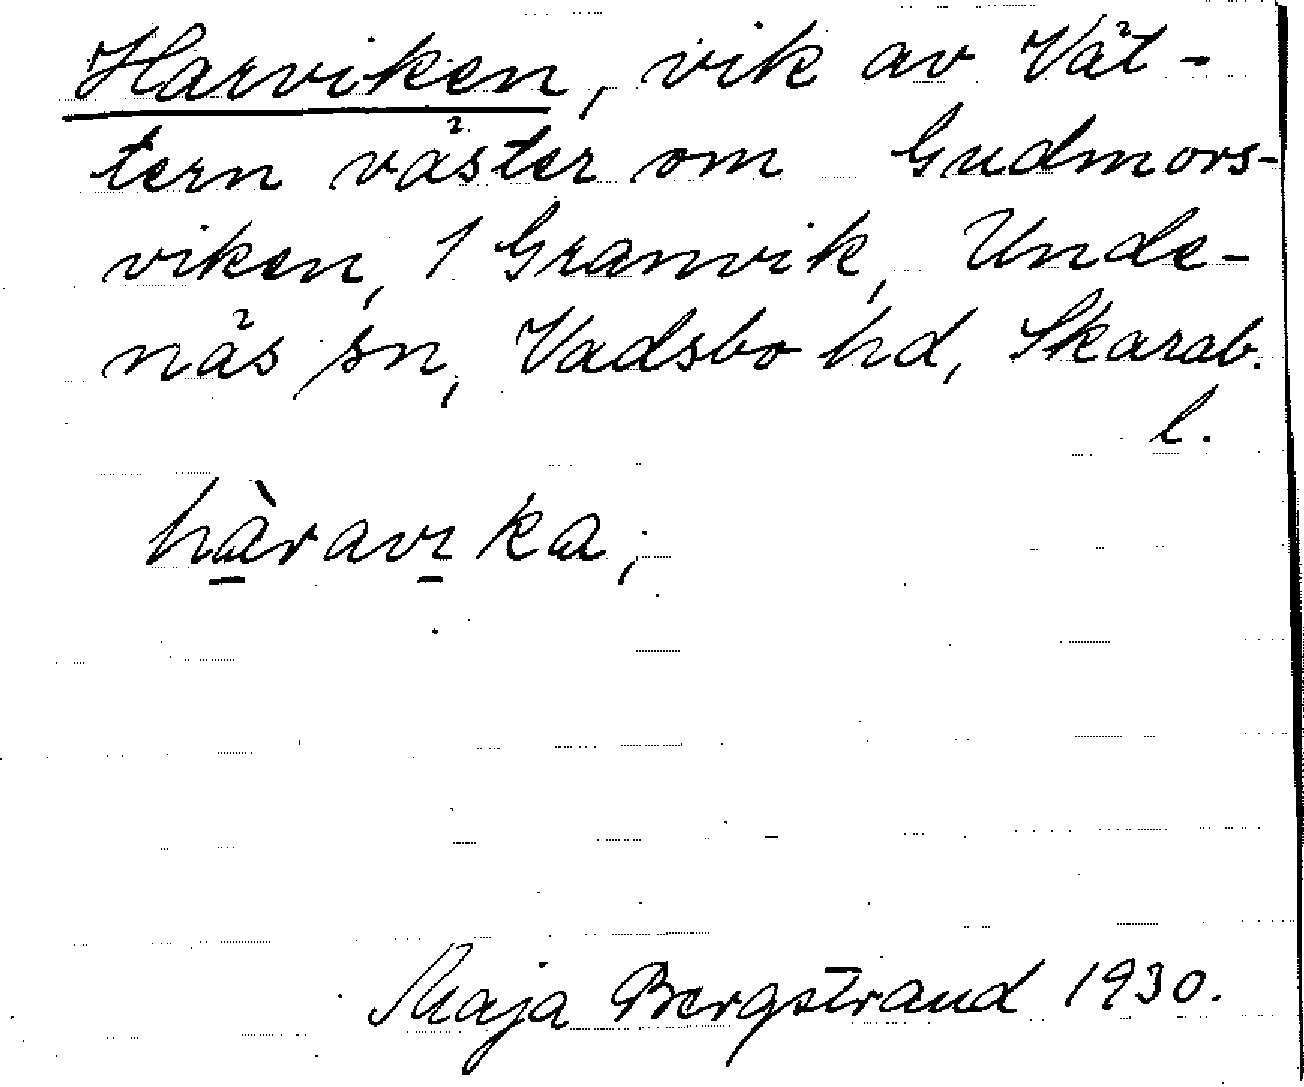 Harviken, vik av Vät-
tern väster om Gudmors-
viken, 1 Granvik, Unde-
näs sn, Vadsbo hd, Skarab.
l.
hàravıka;
Maja Bergstrand 1930.